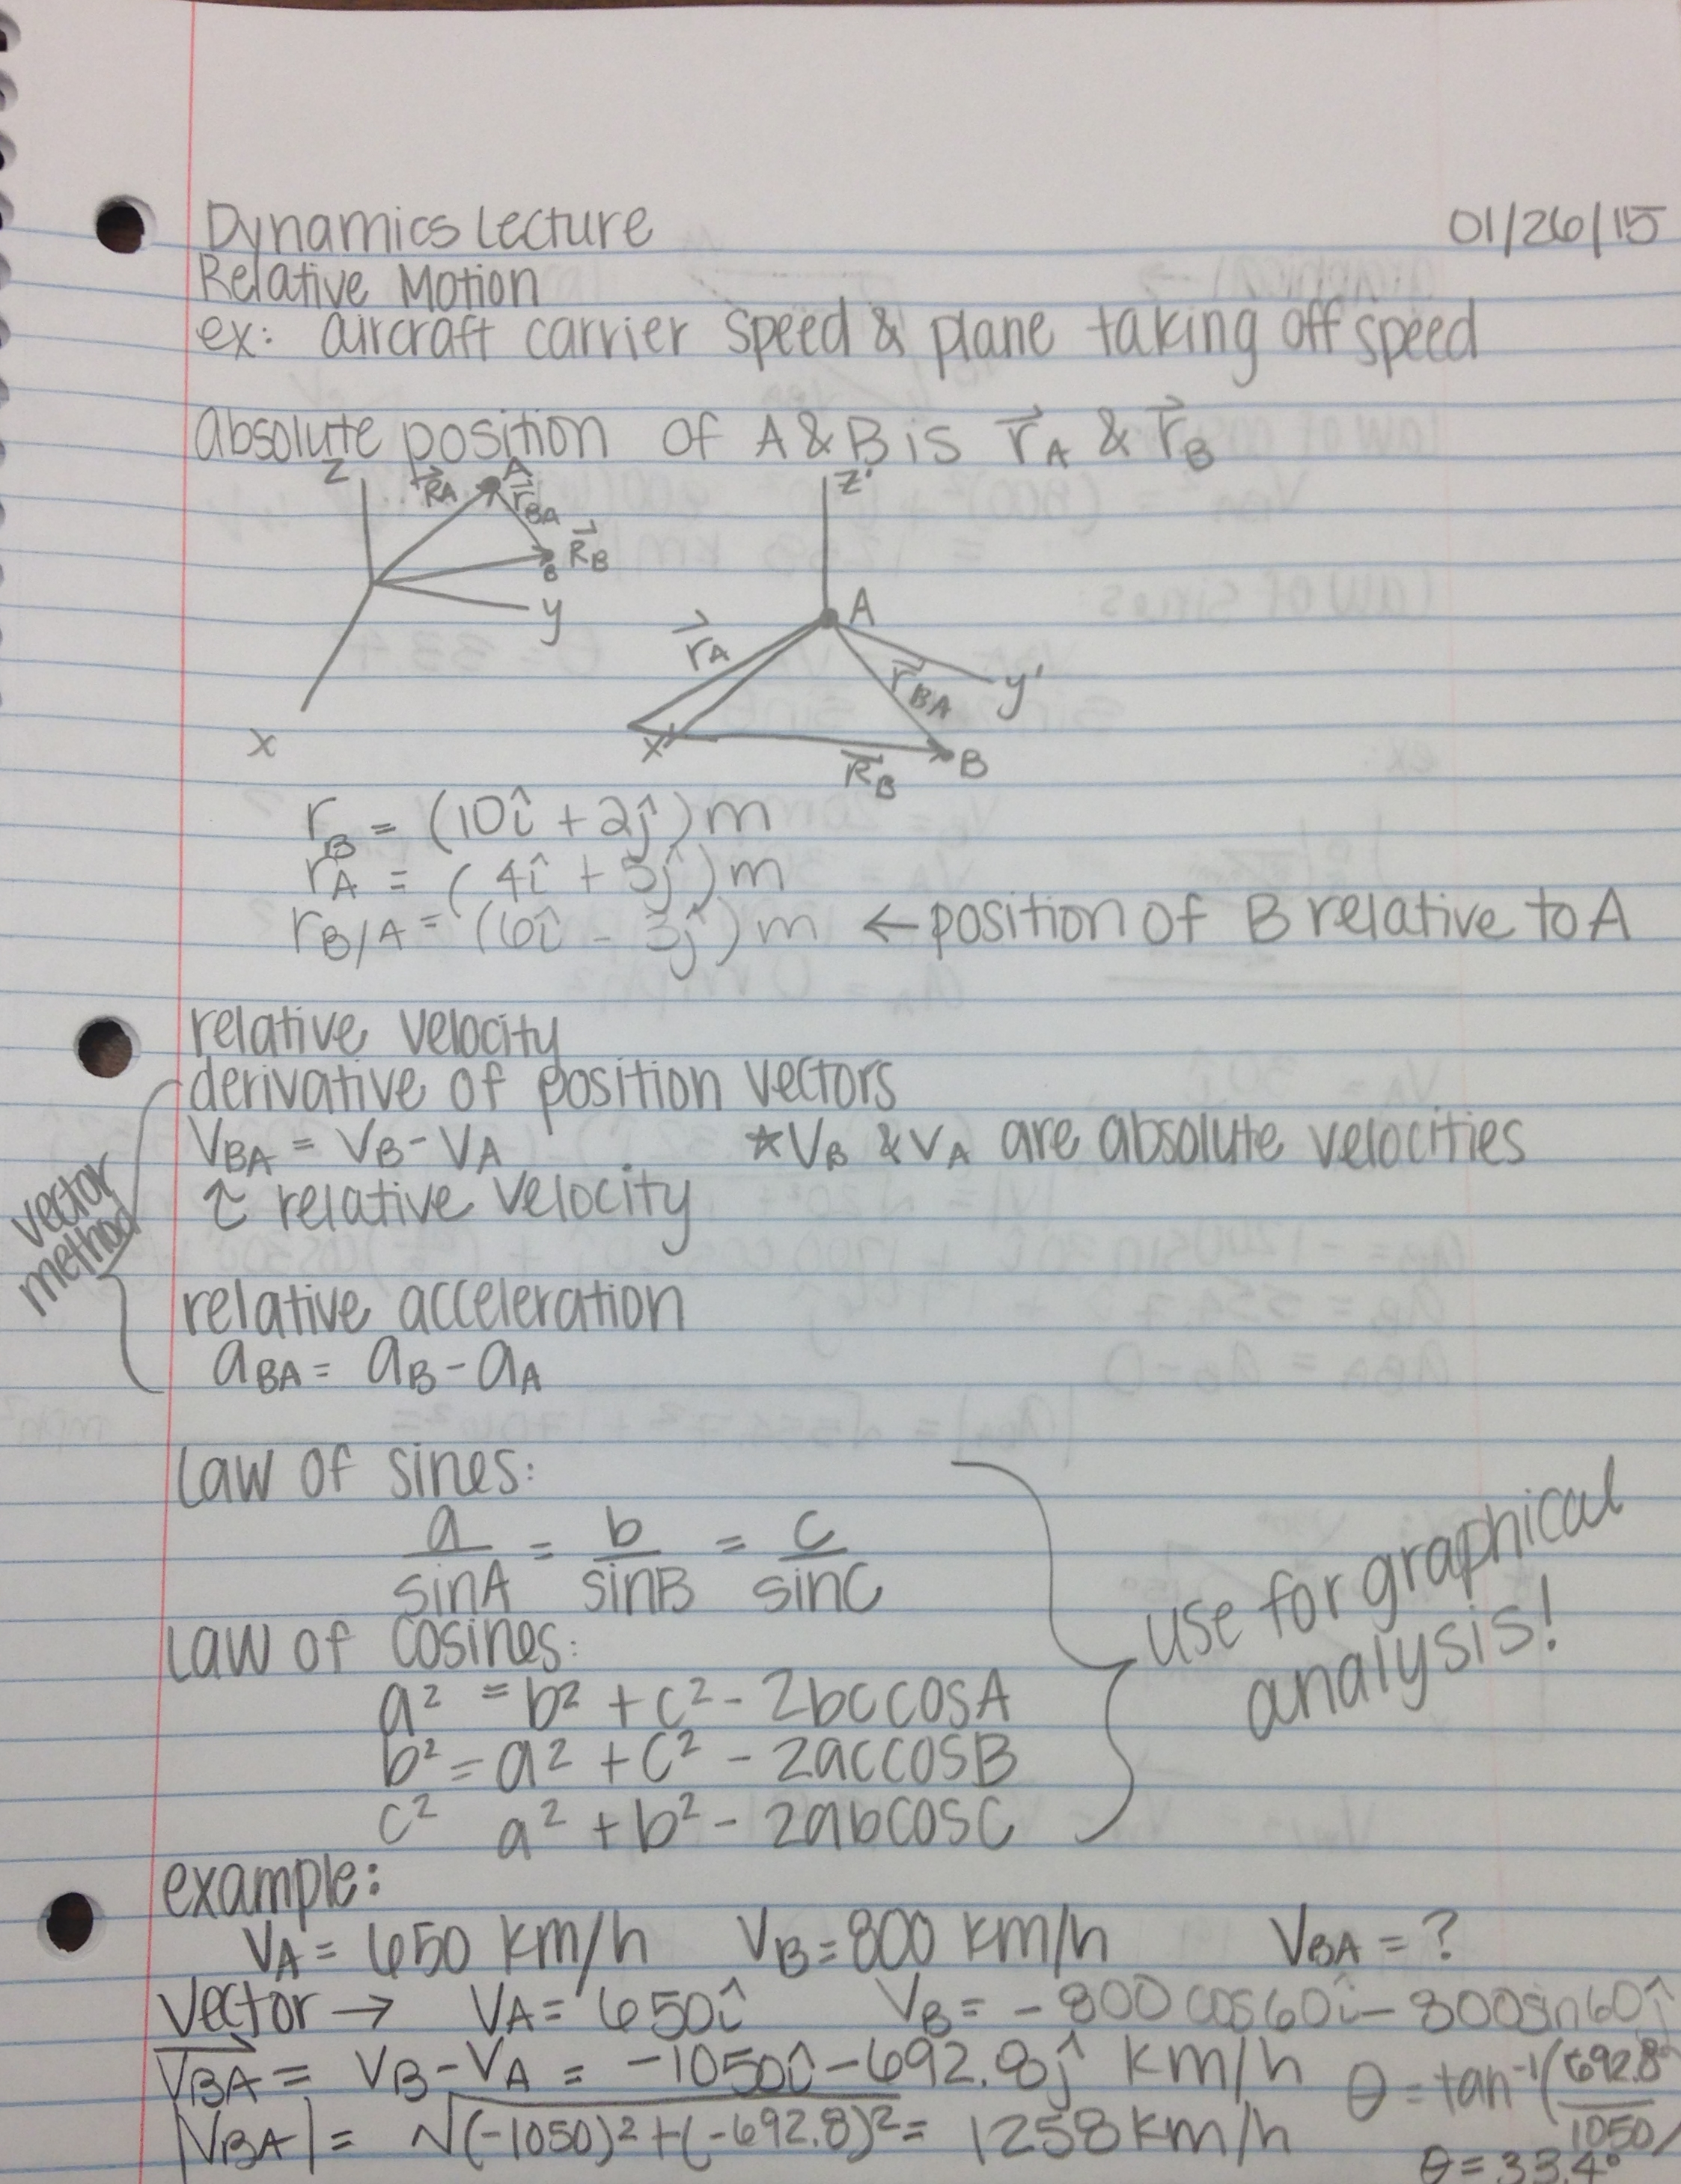 Dynamics Lecture 01/26/15
Relative Motion
ex: aircraft carrier speed & plane taking off speed
absolute position of A & B is r⃗A & r⃗B
z R⃗A A r⃗BA R⃗B B y x
z' A r⃗A r⃗BA y' x' R⃗B B
rB = (10î + 2ĵ) m
rA = (4î + 5ĵ) m
rB/A = (6î - 3ĵ) m ← position of B relative to A
relative velocity
derivative of position vectors
VBA = VB - VA *VB & VA are absolute velocities
relative velocity
vector method
relative acceleration
aBA = aB - aA
law of sines:
a/sinA = b/sinB = c/sinC
law of cosines:
a² = b² + c² - 2bccosA
b² = a² + c² - 2accosB
c² a² + b² - 2abcosC
use for graphical
analysis!
example:
VA = 650 km/h VB = 800 km/h VBA = ?
Vector → VA = 650î VB = -800cos60î - 800sin60ĵ
V⃗BA = VB - VA = -1050î - 692.8ĵ km/h θ = tan⁻¹(692.8/1050)
|VBA| = √(-1050)² + (-692.8)² = 1258 km/h θ = 33.4°